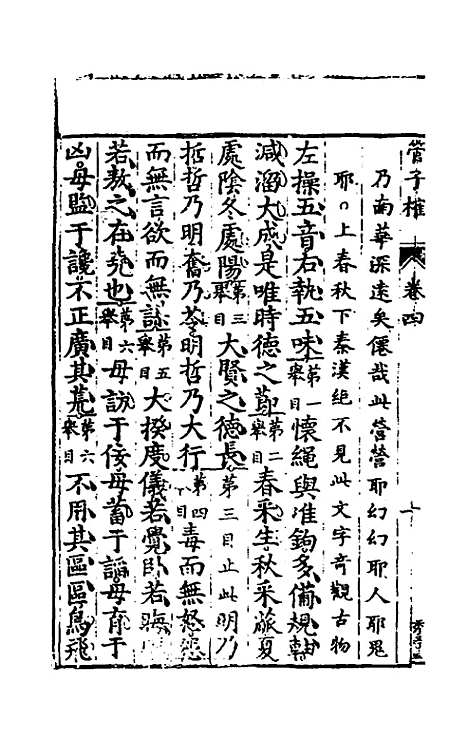 管子榷 卷四
乃南華深遠矣僊哉此管管耶幻幻耶人耶鬼
耶〇上春秋下秦漢絕不見此文字奇觀古物
左操五音右執五味第一舉目懷繩與准鉤多備規軸
減溜大成是唯時德之節第二舉目春采生秋采蓏夏
處陰冬處陽第三舉目大賢之德長第三目止此明乃
哲哲乃明奮乃苓明哲乃大行第四目毒而無怒怨
而無言欲而無謀第五舉目大揆度儀若覺臥若晦明
若敖之在堯也第六舉目毋訪于佞毋蓄于諂毋育于
凶毋監于讒不正廣其荒第六舉目不用其區區鳥飛